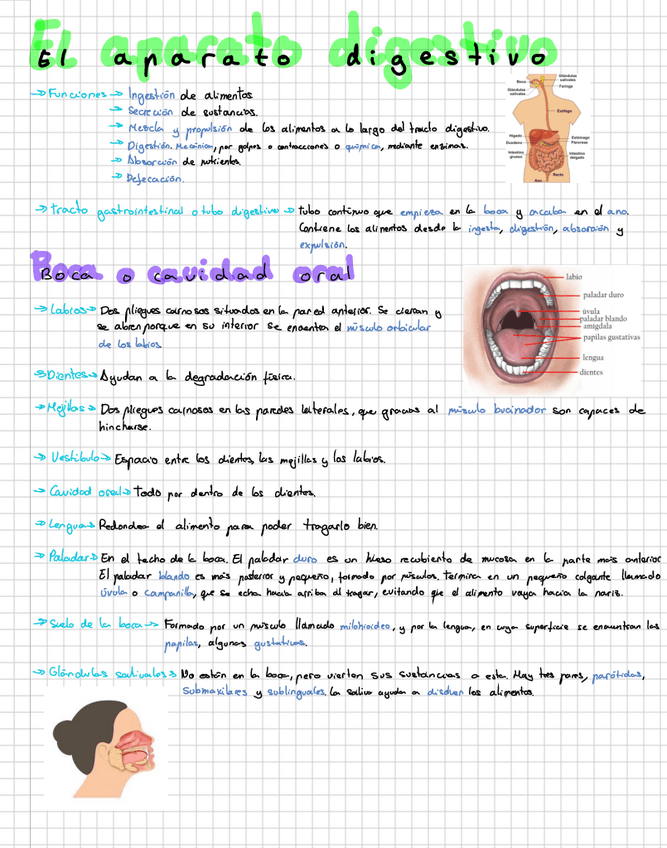 El aparato digestivo
→ Funciones → Ingestión de alimentos.
→ Secreción de sustancias.
→ Mezcla y propulsión de los alimentos a lo largo del tracto digestivo.
→ Digestión. Mecánica, por golpes o contracciones o química, mediante enzimas.
→ Absorción de nutrientes.
→ Defecación.
Boca
Glándulas salivales
Glándulas salivales
Faringe
Esófago
Hígado
Duodeno
Intestino grueso
Estómago
Páncreas
Intestino delgado
Recto
Ano
→ Tracto gastrointestinal o tubo digestivo → Tubo continuo que empieza en la boca y acaba en el ano.
Contiene los alimentos desde la ingesta, digestión, absorción y
expulsión.
Boca o cavidad oral
→ Labios → Dos pliegues carnosos situados en la pared anterior. Se cierran y
se abren porque en su interior se encuentra el músculo orbicular
de los labios.
labio
paladar duro
úvula
paladar blando
amígdala
papilas gustativas
lengua
dientes
→ Dientes → Ayudan a la degradación física.
→ Mejillas → Dos pliegues carnosos en las paredes laterales, que gracias al músculo bucinador son capaces de
hincharse.
→ Vestíbulo → Espacio entre los dientes, las mejillas y los labios.
→ Cavidad oral → Todo por dentro de los dientes.
→ Lengua → Redondea el alimento para poder tragarlo bien.
→ Paladar → En el techo de la boca. El paladar duro es un hueso recubierto de mucosa en la parte más anterior
El paladar blando es más posterior y pequeño, formado por músculos. Termina en un pequeño colgante llamado
úvula o campanilla, que se echa hacia arriba al tragar, evitando que el alimento vaya hacia la nariz.
→ Suelo de la boca → Formado por un músculo llamado milohioideo, y por la lengua, en cuya superficie se encuentran las
papilas, algunas gustativas.
→ Glándulas salivales → No están en la boca, pero vierten sus sustancias a esta. Hay tres pares, parótidas,
submaxilares y sublinguales. La saliva ayuda a disolver los alimentos.